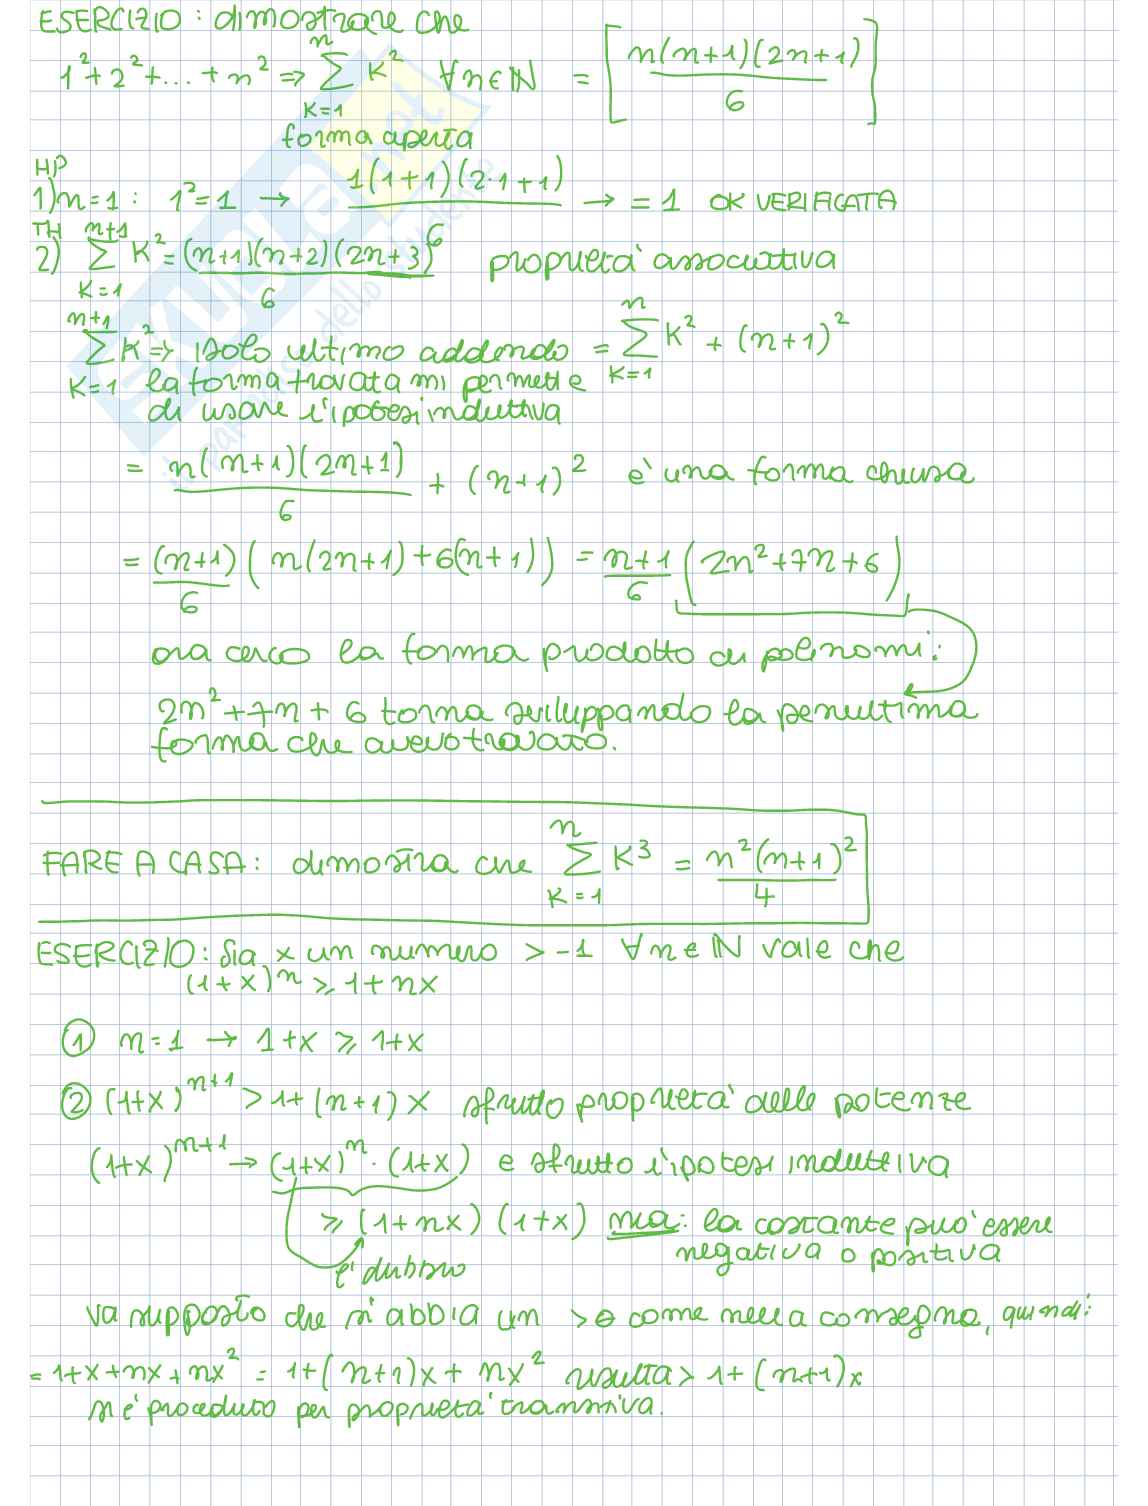 ESERCIZIO : dimostrare che
1²+2²+...+n² => ∑_{K=1}^{n} K² ∀n∈ℕ = [n(n+1)(2n+1)/6]
forma aperta
HP
1) n=1 : 1²=1 → 1(1+1)(2·1+1)/6 → =1 OK VERIFICATA
TH
2) ∑_{K=1}^{n+1} K² = (n+1)(n+2)(2n+3)/6 proprietà associativa
∑_{K=1}^{n+1} K² => isolo ultimo addendo = ∑_{K=1}^{n} K² + (n+1)²
la forma trovata mi permette
di usare l'ipotesi induttiva
= n(n+1)(2n+1)/6 + (n+1)² è una forma chiusa
= (n+1)/6 (n(2n+1)+6(n+1)) = n+1/6 (2n²+7n+6)
ora cerco la forma prodotto di polinomi:
2n²+7n+6 torna sviluppando la penultima
forma che avevo trovato.
FARE A CASA: dimostra che ∑_{K=1}^{n} K³ = n²(n+1)²/4
ESERCIZIO: sia x un numero >-1 ∀n∈ℕ vale che
(1+x)ⁿ ⩾ 1+nx
① n=1 → 1+x ⩾ 1+x
② (1+x)^{n+1} > 1+(n+1)x sfrutto proprietà delle potenze
(1+x)^{n+1} → (1+x)ⁿ·(1+x) e sfrutto l'ipotesi induttiva
⩾ (1+nx)(1+x) ma: la costante può essere
negativa o positiva
è dubbio
va supposto che si abbia un >0 come nella consegna, quindi:
= 1+x+nx+nx² = 1+(n+1)x+nx² risulta > 1+(n+1)x
si è proceduto per proprietà transitiva.